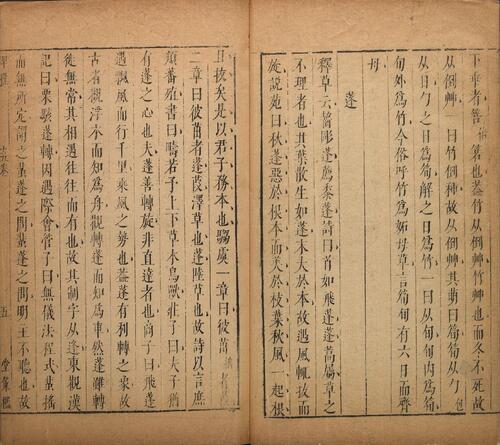 下垂者箁箬也蓋竹从倒艸竹艸也而冬不死故
从倒艸一曰竹倒種故从倒艸其萌曰筍筍从勹
从日勹之日爲筍解之日爲竹一曰从旬旬内爲筍
旬外爲竹今俗呼竹爲妬母草言筍旬有六日而齊
母
蓬
釋草云齧彫蓬薦黍蓬詩曰首如飛蓬蓬蒿屬草之
不理者也其葉散生如蓬末大於本故遇風輒拔而
旋說苑曰秋蓬惡於根本而美於枝葉秋風一起根
且拔矣是以君子務本也騶虞一章曰彼茁
二章曰彼茁者蓬葭澤草也蓬陸草也故詩以言庶
類蕃殖書曰疇若予上下草木鳥獸莊子曰夫子猶
有蓬之心也夫蓬善轉旋非直達者也商子曰飛蓬
遇飄風而行千里乘風之勢也蓋蓬有利轉之象故
古者觀浮木而知爲舟觀轉蓬而知爲車然蓬雖轉
徙無常其相遇往往而有也故其制字从逢東觀漢
記曰栗駭蓬轉因遇際會管子曰無儀法程式蜚搖
而無所定謂之蜚蓬之問蜚蓬之問明王不聽也故
五 堂策檻